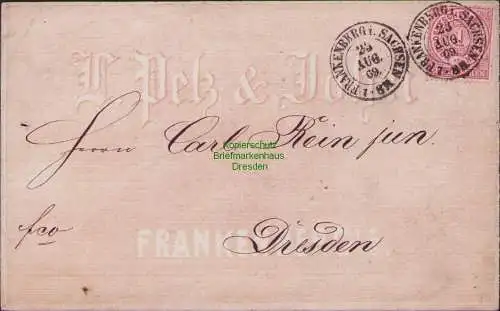 FRANKENBERG I. SACHSEN
23
AUG.
69.
FRANKENBERG I. SACHSEN
23
AUG.
69.
Pelz &
Kopierschutz
Briefmarkenhaus
Dresden
Herrn Carl Rein jun.
fco
Dresden